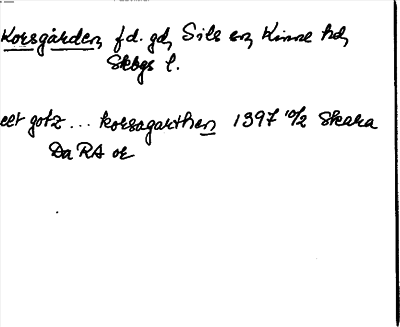 Korsgården, f.d. gd, Sils sn, Kinne hd,
Skbgs l.
ett gotz ... korsagarthen 1397 10/2 Skara
Da RA or